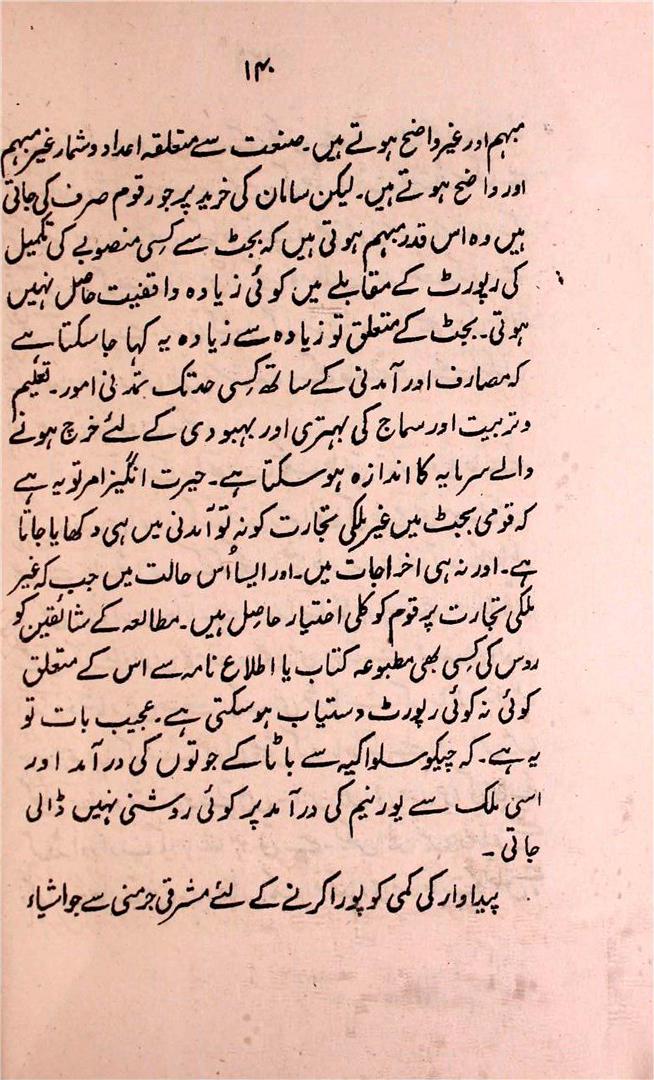 ۱۴۰
مبہم اور غیر واضح ہوتے ہیں۔ صنعت سے متعلقہ اعداد و شمار غیر مبہم
اور واضح ہوتے ہیں۔ لیکن سامان کی خرید پر جو رقوم صرف کی جاتی
ہیں وہ اس قدر مبہم ہوتی ہیں کہ بجٹ سے کسی منصوبے کی تکمیل
کی رپورٹ کے مقابلے میں کوئی زیادہ واقفیت حاصل نہیں
ہوتی۔ بجٹ کے متعلق تو زیادہ سے زیادہ یہ کہا جا سکتا ہے
کہ مصارف اور آمدنی کے ساتھ کسی حد تک تمدنی امور۔ تعلیم
و تربیت اور سماج کی بہتری اور بہبودی کے لئے خرچ ہونے
والے سرمایہ کا اندازہ ہو سکتا ہے۔ حیرت انگیز امر تو یہ ہے
کہ قومی بجٹ میں غیر ملکی تجارت کو نہ تو آمدنی میں ہی دکھایا جاتا
ہے۔ اور نہ ہی اخراجات میں۔ اور ایسا اُس حالت میں جب کہ غیر
ملکی تجارت پر قوم کو کلی اختیار حاصل ہیں۔ مطالعہ کے شائقین کو
روس کی کسی بھی مطبوعہ کتاب یا اطلاع نامہ سے اس کے متعلق
کوئی نہ کوئی رپورٹ دستیاب ہو سکتی ہے۔ عجیب بات تو
یہ ہے۔ کہ چیکوسلواکیہ سے باٹا کے جوتوں کی درآمد اور
اسی ملک سے یورنیم کی درآمد پر کوئی روشنی نہیں ڈالی
جاتی۔
پیداوار کی کمی کو پورا کرنے کے لئے مشرقی جرمنی سے جو اشیاء